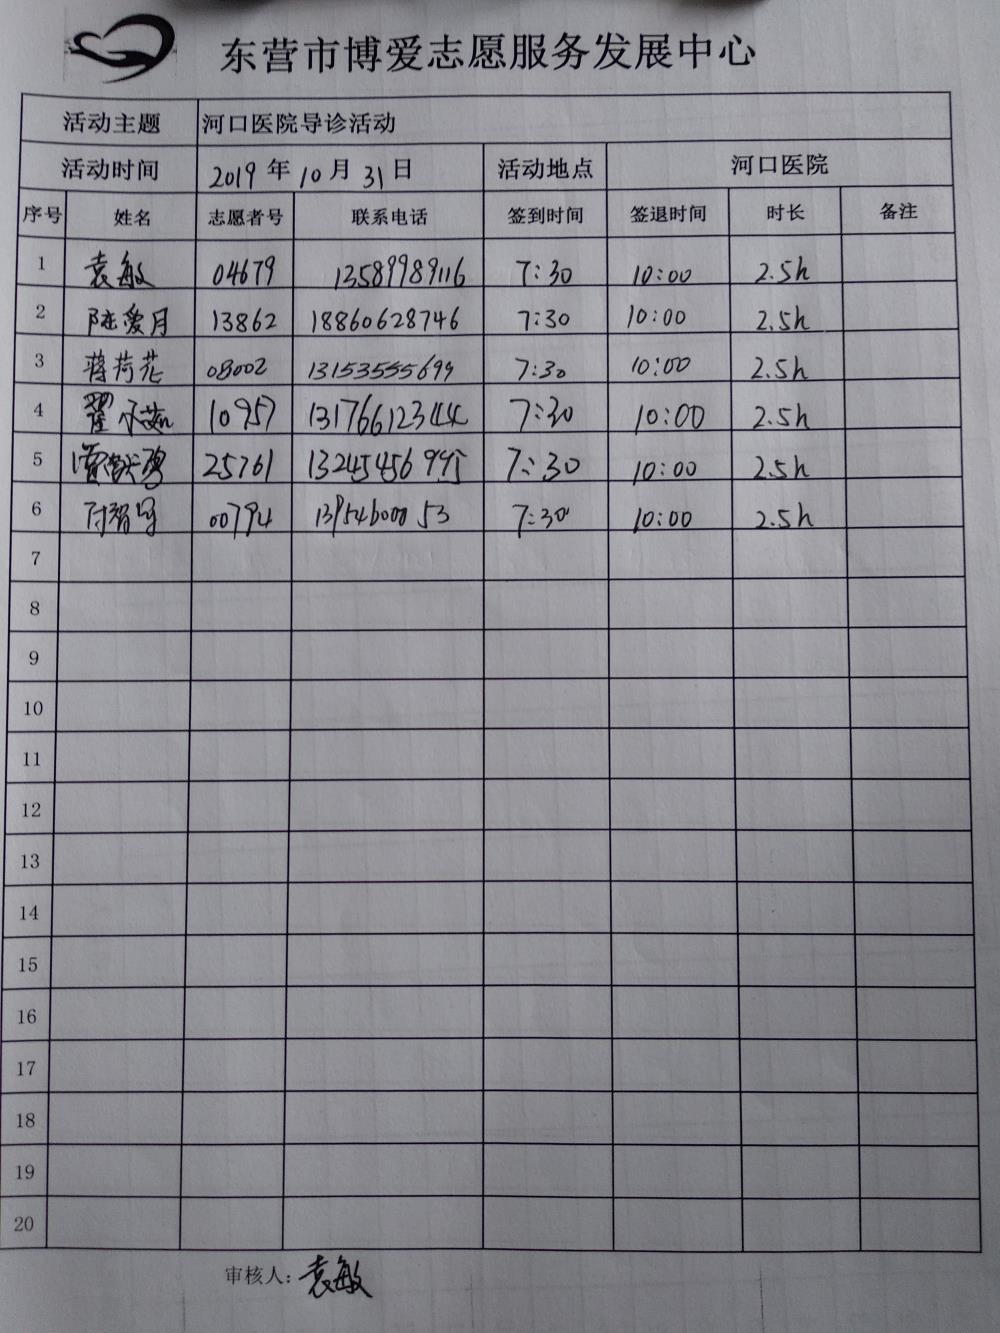 东营市博爱志愿服务发展中心
活动主题 河口医院导诊活动
活动时间 2019年10月31日 活动地点 河口医院
序号 姓名 志愿者号 联系电话 签到时间 签退时间 时长 备注
1 袁敏 04679 13589989116 7:30 10:00 2.5h
2 陈爱月 13862 18860628746 7:30 10:00 2.5h
3 蒋荷花 08002 13153555699 7:30 10:00 2.5h
4 翟 10957 13176612344 7:30 10:00 2.5h
5 25761 7:30 10:00 2.5h
6 00794 13954600053 7:30 10:00 2.5h
7
8
9
10
11
12
13
14
15
16
17
18
19
20
审核人：袁敏